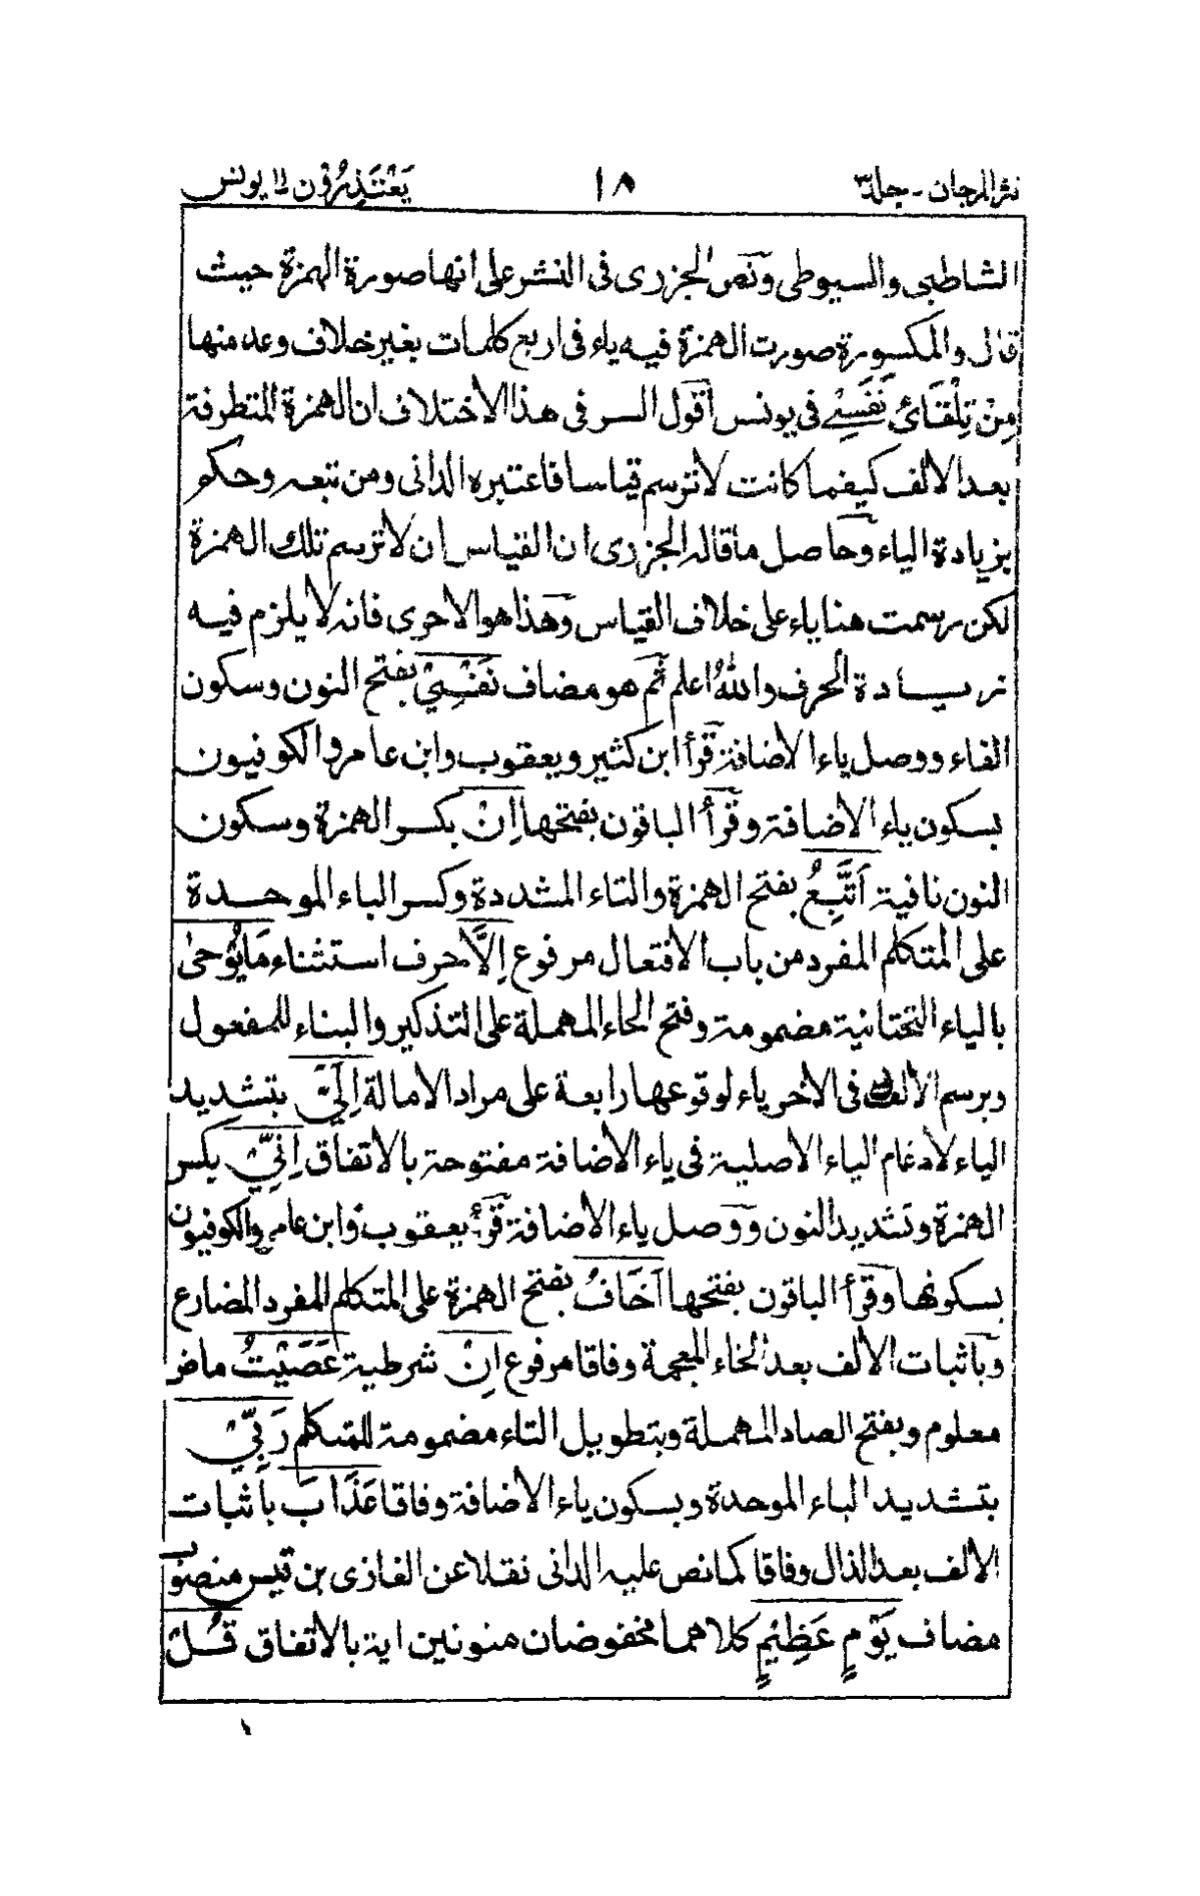 نثر المرجان - جلد ٣ ١٨ يَعْتَذِرُوْنَ ١١ يونس
الشاطبي والسيوطي ونص الجزرى فى النشر على انها صورة الهمزة حيث
قال والمكسورة صورت الهمزة فيه ياء فى اربع كلمات بغير خلاف وعد منها
مِنْ تِلْقَائِ نَفْسِيْ فى يونس اقول السر فى هذا الاختلاف ان الهمزة المتطرفة
بعد الالف كيفما كانت لا ترسم قياسا فاعتبره الدانى ومن تبعه وحكم
بزيادة الياء وحاصل ما قاله الجزرى ان القياس ان لا ترسم تلك الهمزة
لكن رسمت هنا ياء على خلاف القياس وهذا هو الاحرى فانه لا يلزم فيه
زيادة الحرف والله اعلم ثم هو مضاف نَفْسِيْ بفتح النون وسكون
الفاء ووصل ياء الاضافة قرأ ابن كثير ويعقوب وابن عامر والكوفيون
بسكون ياء الاضافة وقرأ الباقون بفتحها اِنْ بكسر الهمزة وسكون
النون نافية اَتَّبِعُ بفتح الهمزة والتاء المشددة وكسر الباء الموحدة
على المتكلم المفرد من باب الافتعال مرفوع اِلَّا حرف استثناء مَا يُوْحٰى
بالياء التحتانية مضمومة وفتح الحاء المهملة على التذكير والبناء للمفعول
وبرسم الالف فى الاخر ياء لوقوعها رابعة على مراد الامالة اِلَيَّ بتشديد
الياء لادغام الياء الاصلية فى ياء الاضافة مفتوحة بالاتفاق اِنِّيْ بكسر
الهمزة وتشديد النون ووصل ياء الاضافة قرأ يعقوب وابن عامر والكوفيون
بسكونها وقرأ الباقون بفتحها اَخَافُ بفتح الهمزة على المتكلم المفرد المضارع
وباثبات الالف بعد الخاء المعجمة وفاقا مرفوع اِنْ شرطية عَصَيْتُ ماض
معلوم وبفتح الصاد المهملة وبتطويل التاء مضمومة للمتكلم رَبِّيْ
بتشديد الباء الموحدة وبسكون ياء الاضافة وفاقا عَذَابَ باثبات
الالف بعد الذال وفاقا كما نص عليه الدانى نقلا عن الغازى بن قيس منصوب
مضاف يَوْمٍ عَظِيْمٍ كلاهما مخفوضان منونين اية بالاتفاق قُلْ